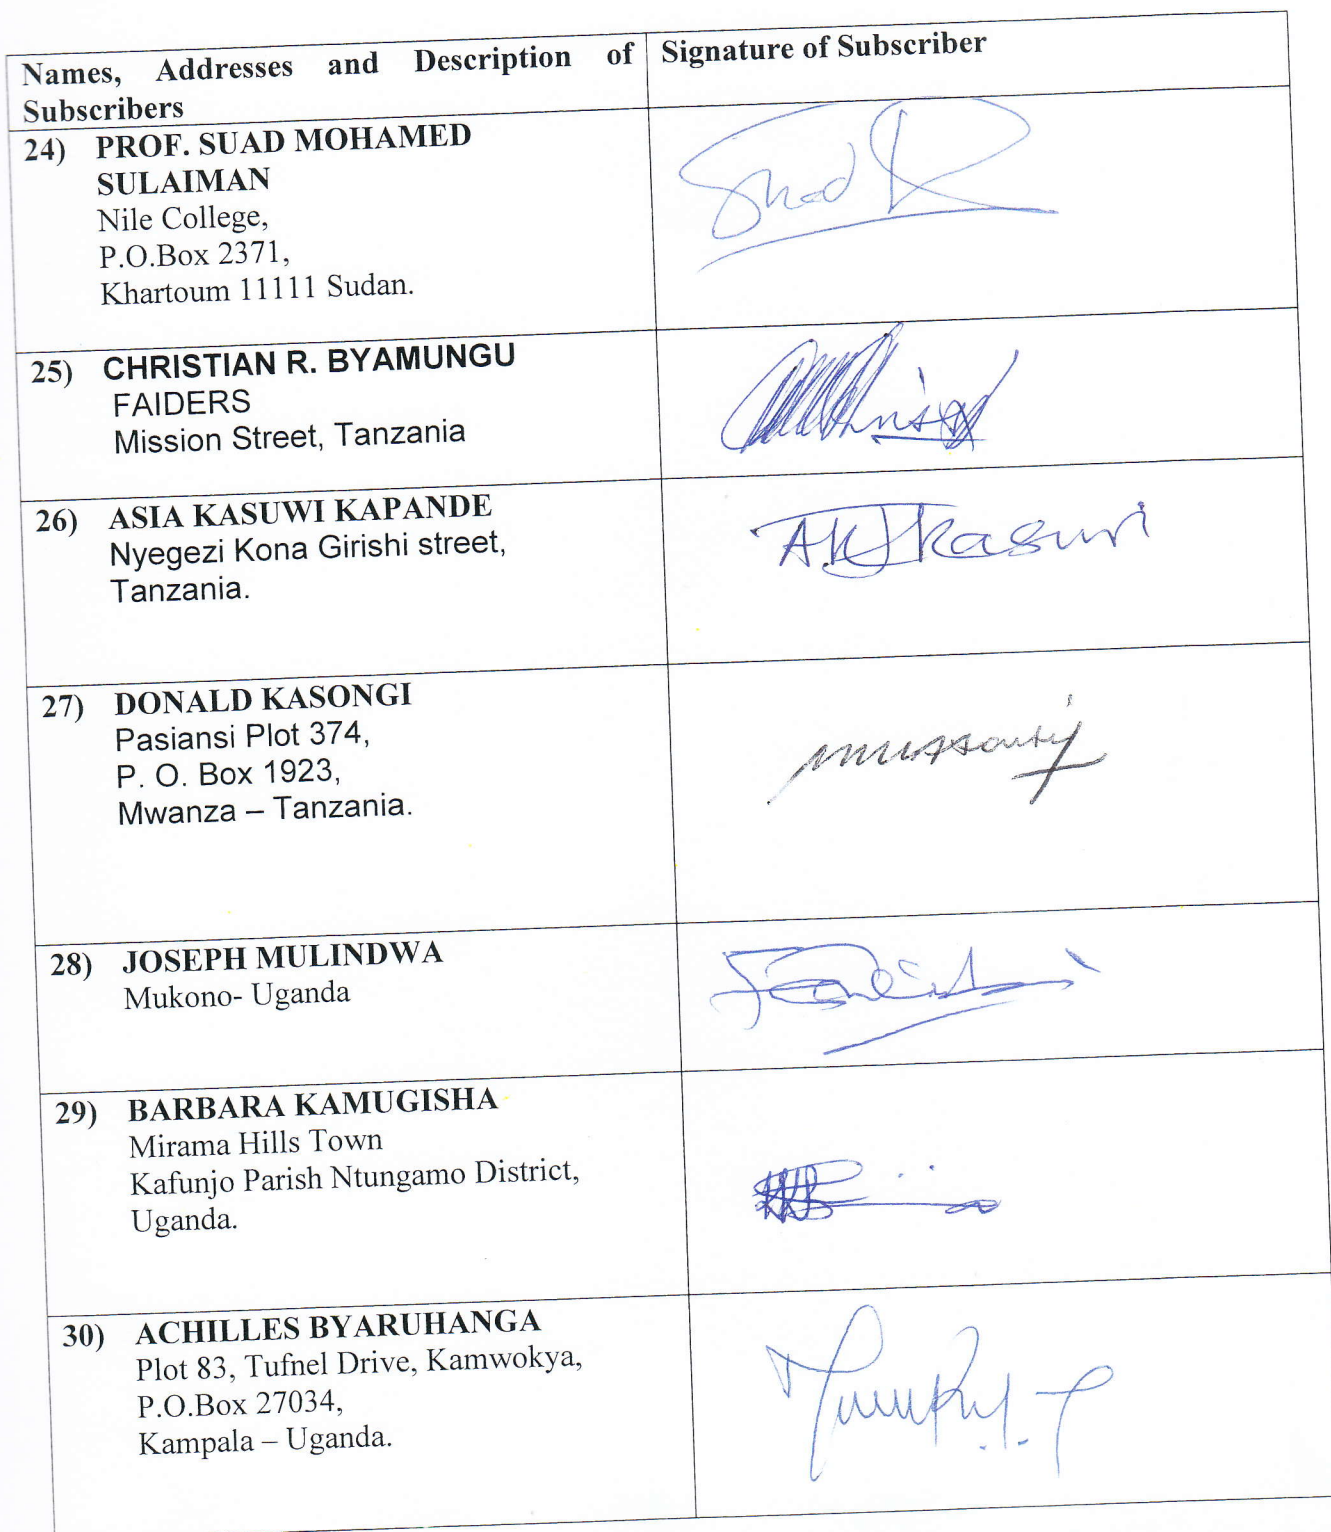 Names, Addresses and Description of Subscribers
Signature of Subscriber
24) PROF. SUAD MOHAMED
SULAIMAN
Nile College,
P.O.Box 2371,
Khartoum 11111 Sudan.
Suad
25) CHRISTIAN R. BYAMUNGU
FAIDERS
Mission Street, Tanzania
26) ASIA KASUWI KAPANDE
Nyegezi Kona Girishi street,
Tanzania.
A.K Kasuwi
27) DONALD KASONGI
Pasiansi Plot 374,
P. O. Box 1923,
Mwanza – Tanzania.
28) JOSEPH MULINDWA
Mukono- Uganda
29) BARBARA KAMUGISHA
Mirama Hills Town
Kafunjo Parish Ntungamo District,
Uganda.
30) ACHILLES BYARUHANGA
Plot 83, Tufnel Drive, Kamwokya,
P.O.Box 27034,
Kampala – Uganda.